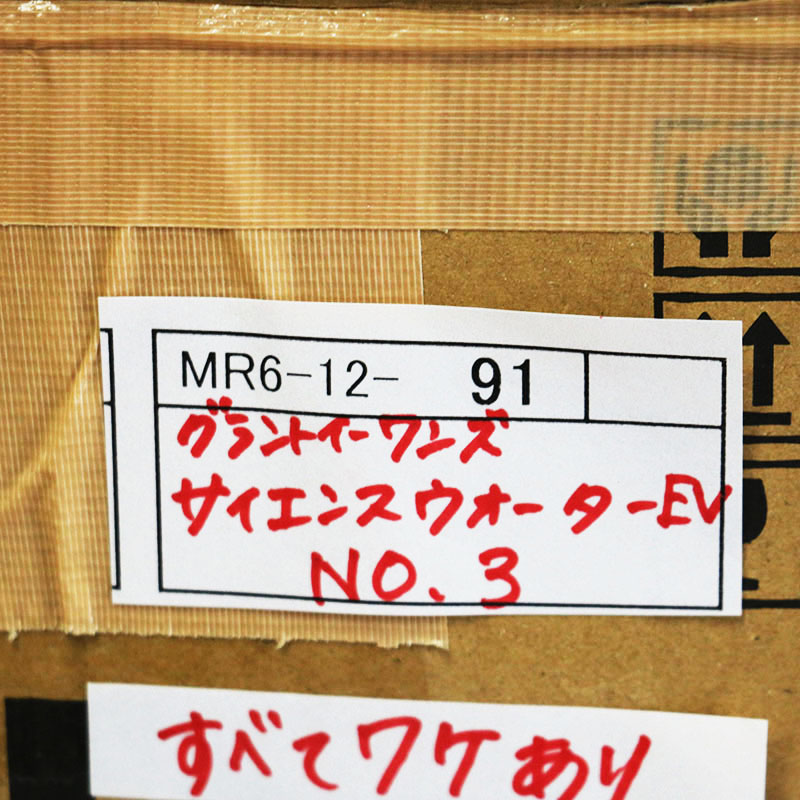 MR6-12- 91
グラントイーワンズ
サイエンスウォーターEV
NO.3
すべてワケあり